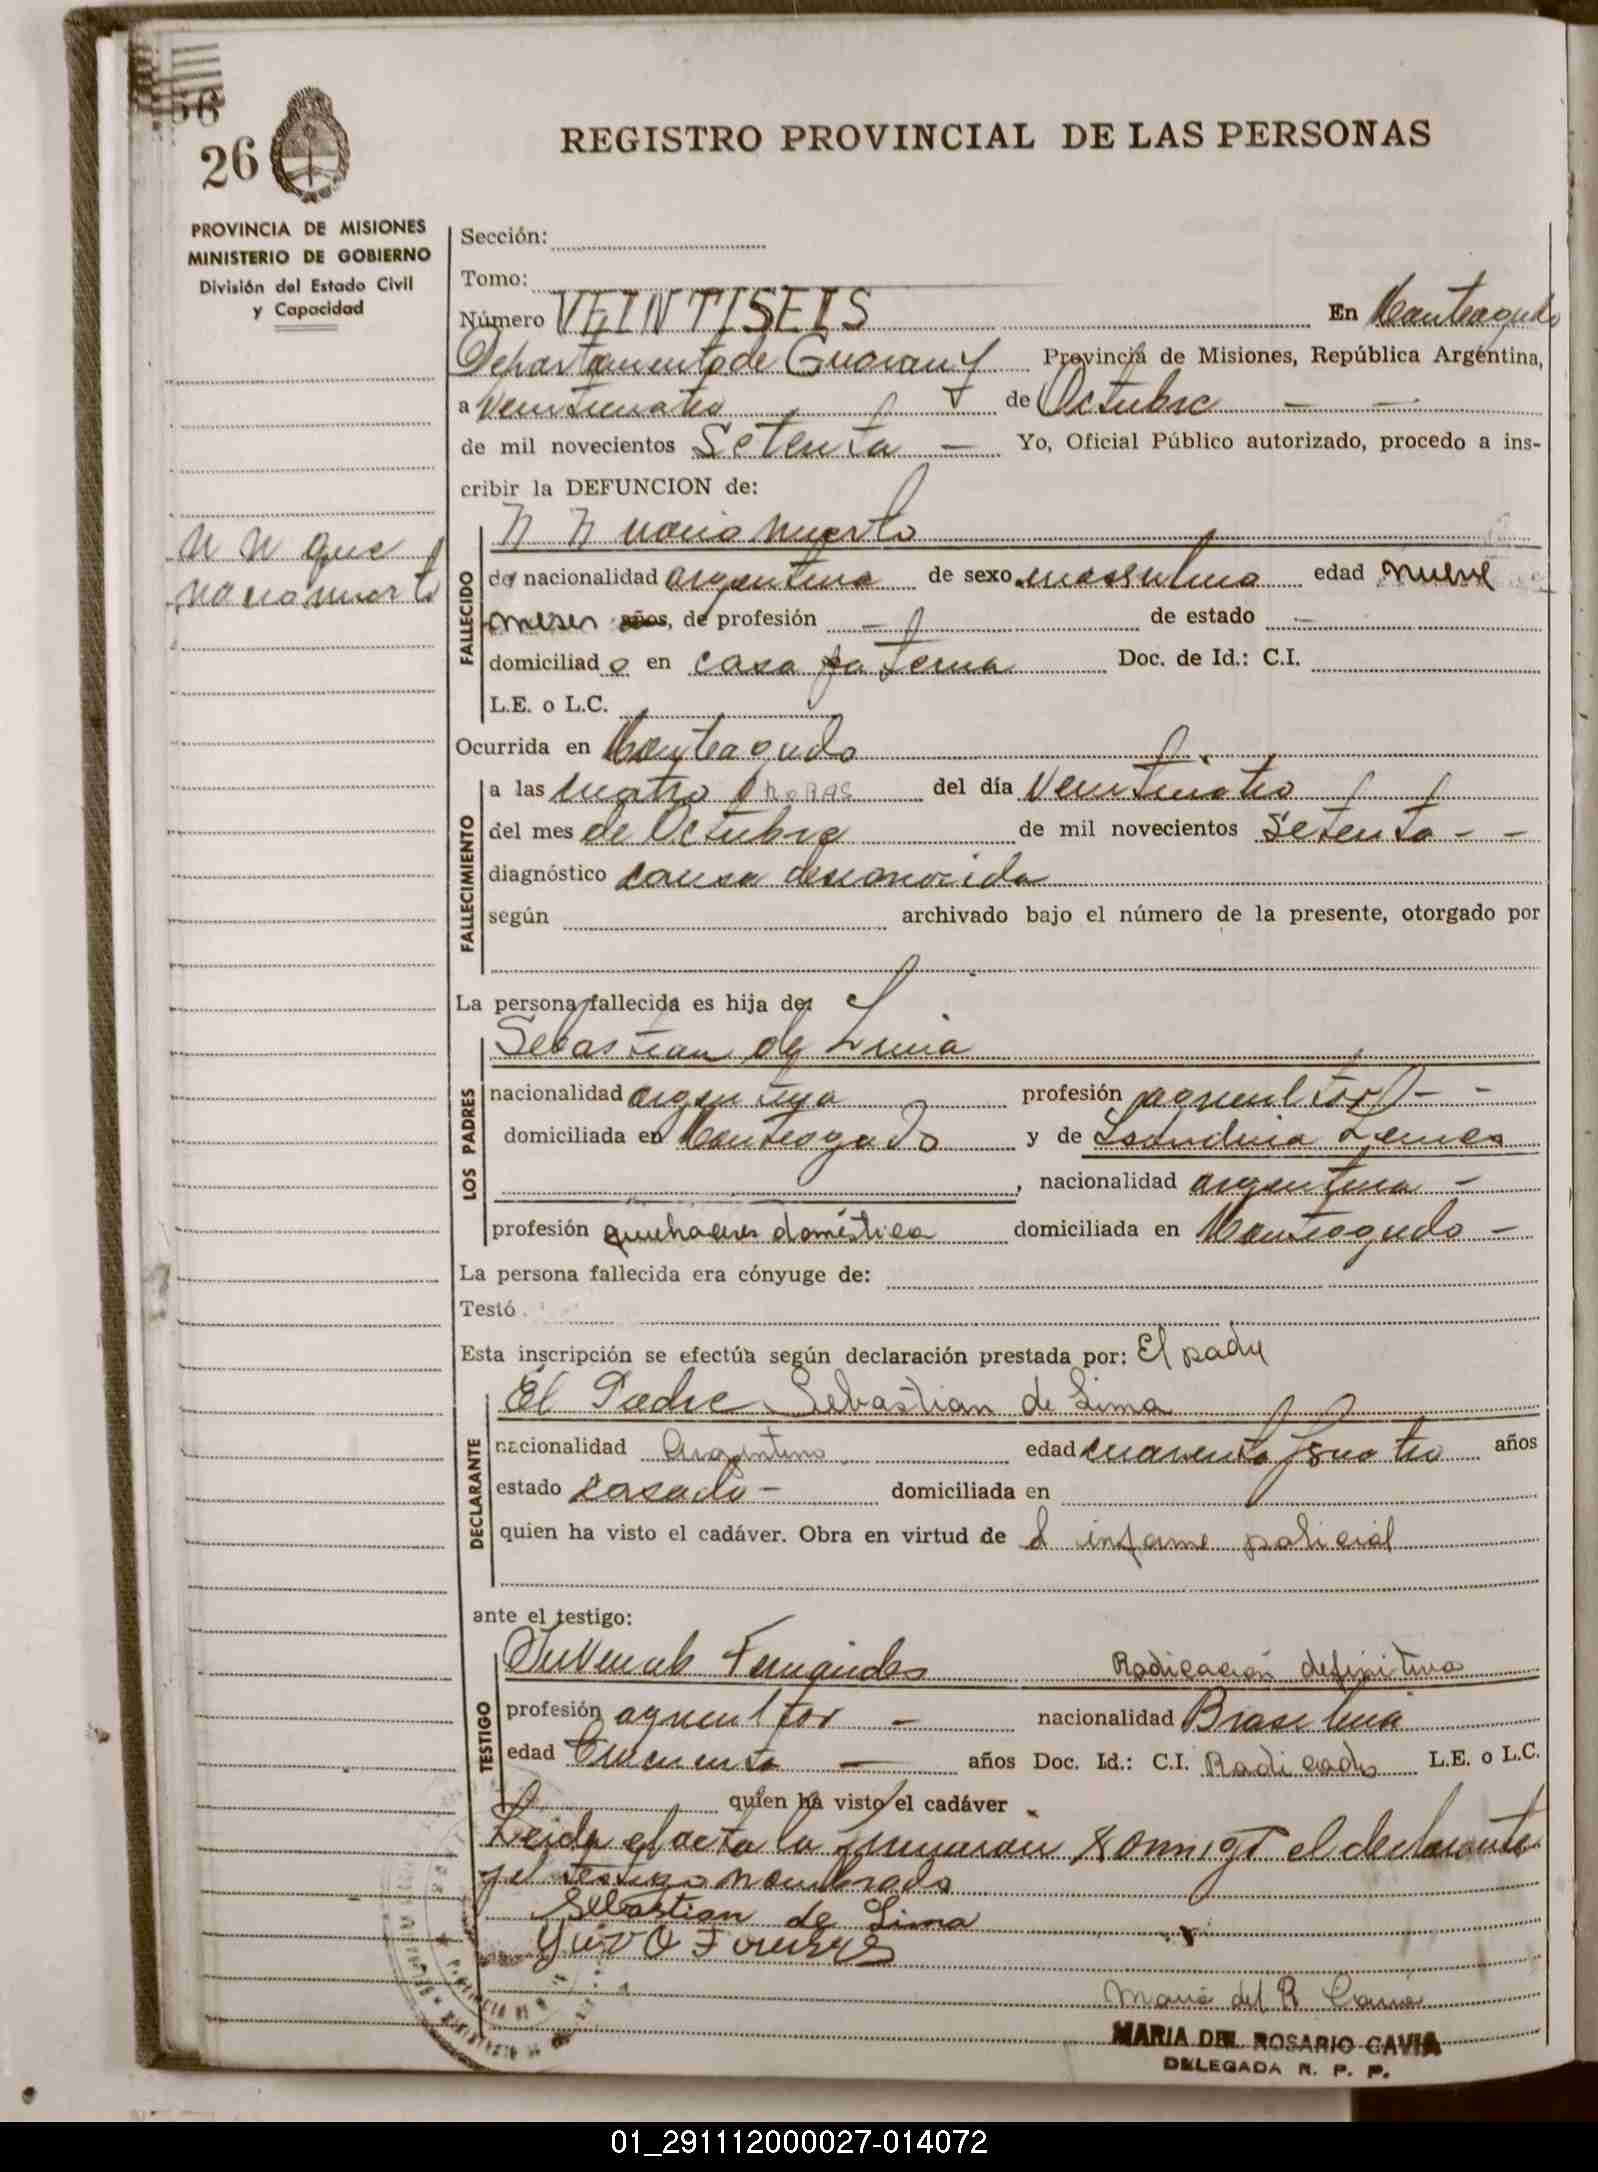 56
26
REGISTRO PROVINCIAL DE LAS PERSONAS
PROVINCIA DE MISIONES
MINISTERIO DE GOBIERNO
División del Estado Civil
y Capacidad
Sección:
Tomo:
Número VEINTISEIS En Monteagudo
Departamento de Guarany Provincia de Misiones, República Argentina,
a veinticuatro de Octubre — —
de mil novecientos Setenta — Yo, Oficial Público autorizado, procedo a ins-
cribir la DEFUNCION de:
N N nacio muerto
N N que
nacio muerto
FALLECIDO
de nacionalidad argentina de sexo masculino edad nueve
meses años, de profesión — de estado —
domiciliado en casa paterna Doc. de Id.: C.I.
L.E. o L.C.
Ocurrida en Monteagudo
FALLECIMIENTO
a las cuatro HORAS del día veinticuatro
del mes de Octubre de mil novecientos Setenta - -
diagnóstico causa desconocida
según archivado bajo el número de la presente, otorgado por
La persona fallecida es hija de:
Sebastian de Lima
LOS PADRES
nacionalidad argentina profesión agricultor - -
domiciliada en Monteagudo y de Lemes
, nacionalidad argentina -
profesión quehaceres doméstica domiciliada en Monteagudo -
La persona fallecida era cónyuge de:
Testó
Esta inscripción se efectúa según declaración prestada por: El padre
El Padre Sebastian de Lima
DECLARANTE
nacionalidad Argentino edad cuarenta y cuatro años
estado casado - domiciliada en
quien ha visto el cadáver. Obra en virtud de el informe policial
ante el testigo:
Juvenal Fernandes Radicación definitiva
TESTIGO
profesión agricultor - nacionalidad Brasilera
edad Cincuenta — años Doc. Id.: C.I. Radicado L.E. o L.C.
quien ha visto el cadáver
Leida el acta la firmaran conmigo el declarante
y el testigo nombrado
Sebastian de Lima
Maria del R Cavia
MARIA DEL ROSARIO CAVIA
DELEGADA R. P. P.
01_291112000027-014072